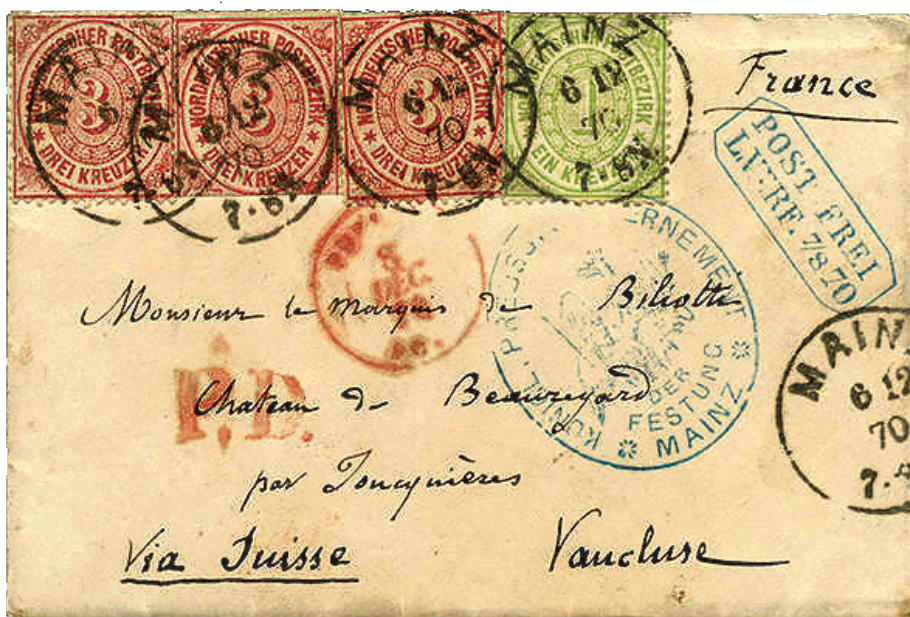 NORDDEUTSCHER POSTBEZIRK
3
DREI KREUZER
NORDDEUTSCHER POSTBEZIRK
3
DREI KREUZER
NORDDEUTSCHER POSTBEZIRK
3
DREI KREUZER
NORDDEUTSCHER POSTBEZIRK
1
EIN KREUZER
MAINZ
MAINZ
6 12
70
MAINZ
6 12
70
MAINZ
6 12
70
7-8N
France
POST FREI
LVRE. 7/8.70
DEC.
KÖNIGL. PREUSS. GOUVERNEMENT
DER
FESTUNG
MAINZ
Monsieur le Marquis de Biliotti
P.D.
Chateau de Beauregard
MAINZ
6 12
70
par Jonquières
Via Suisse Vaucluse